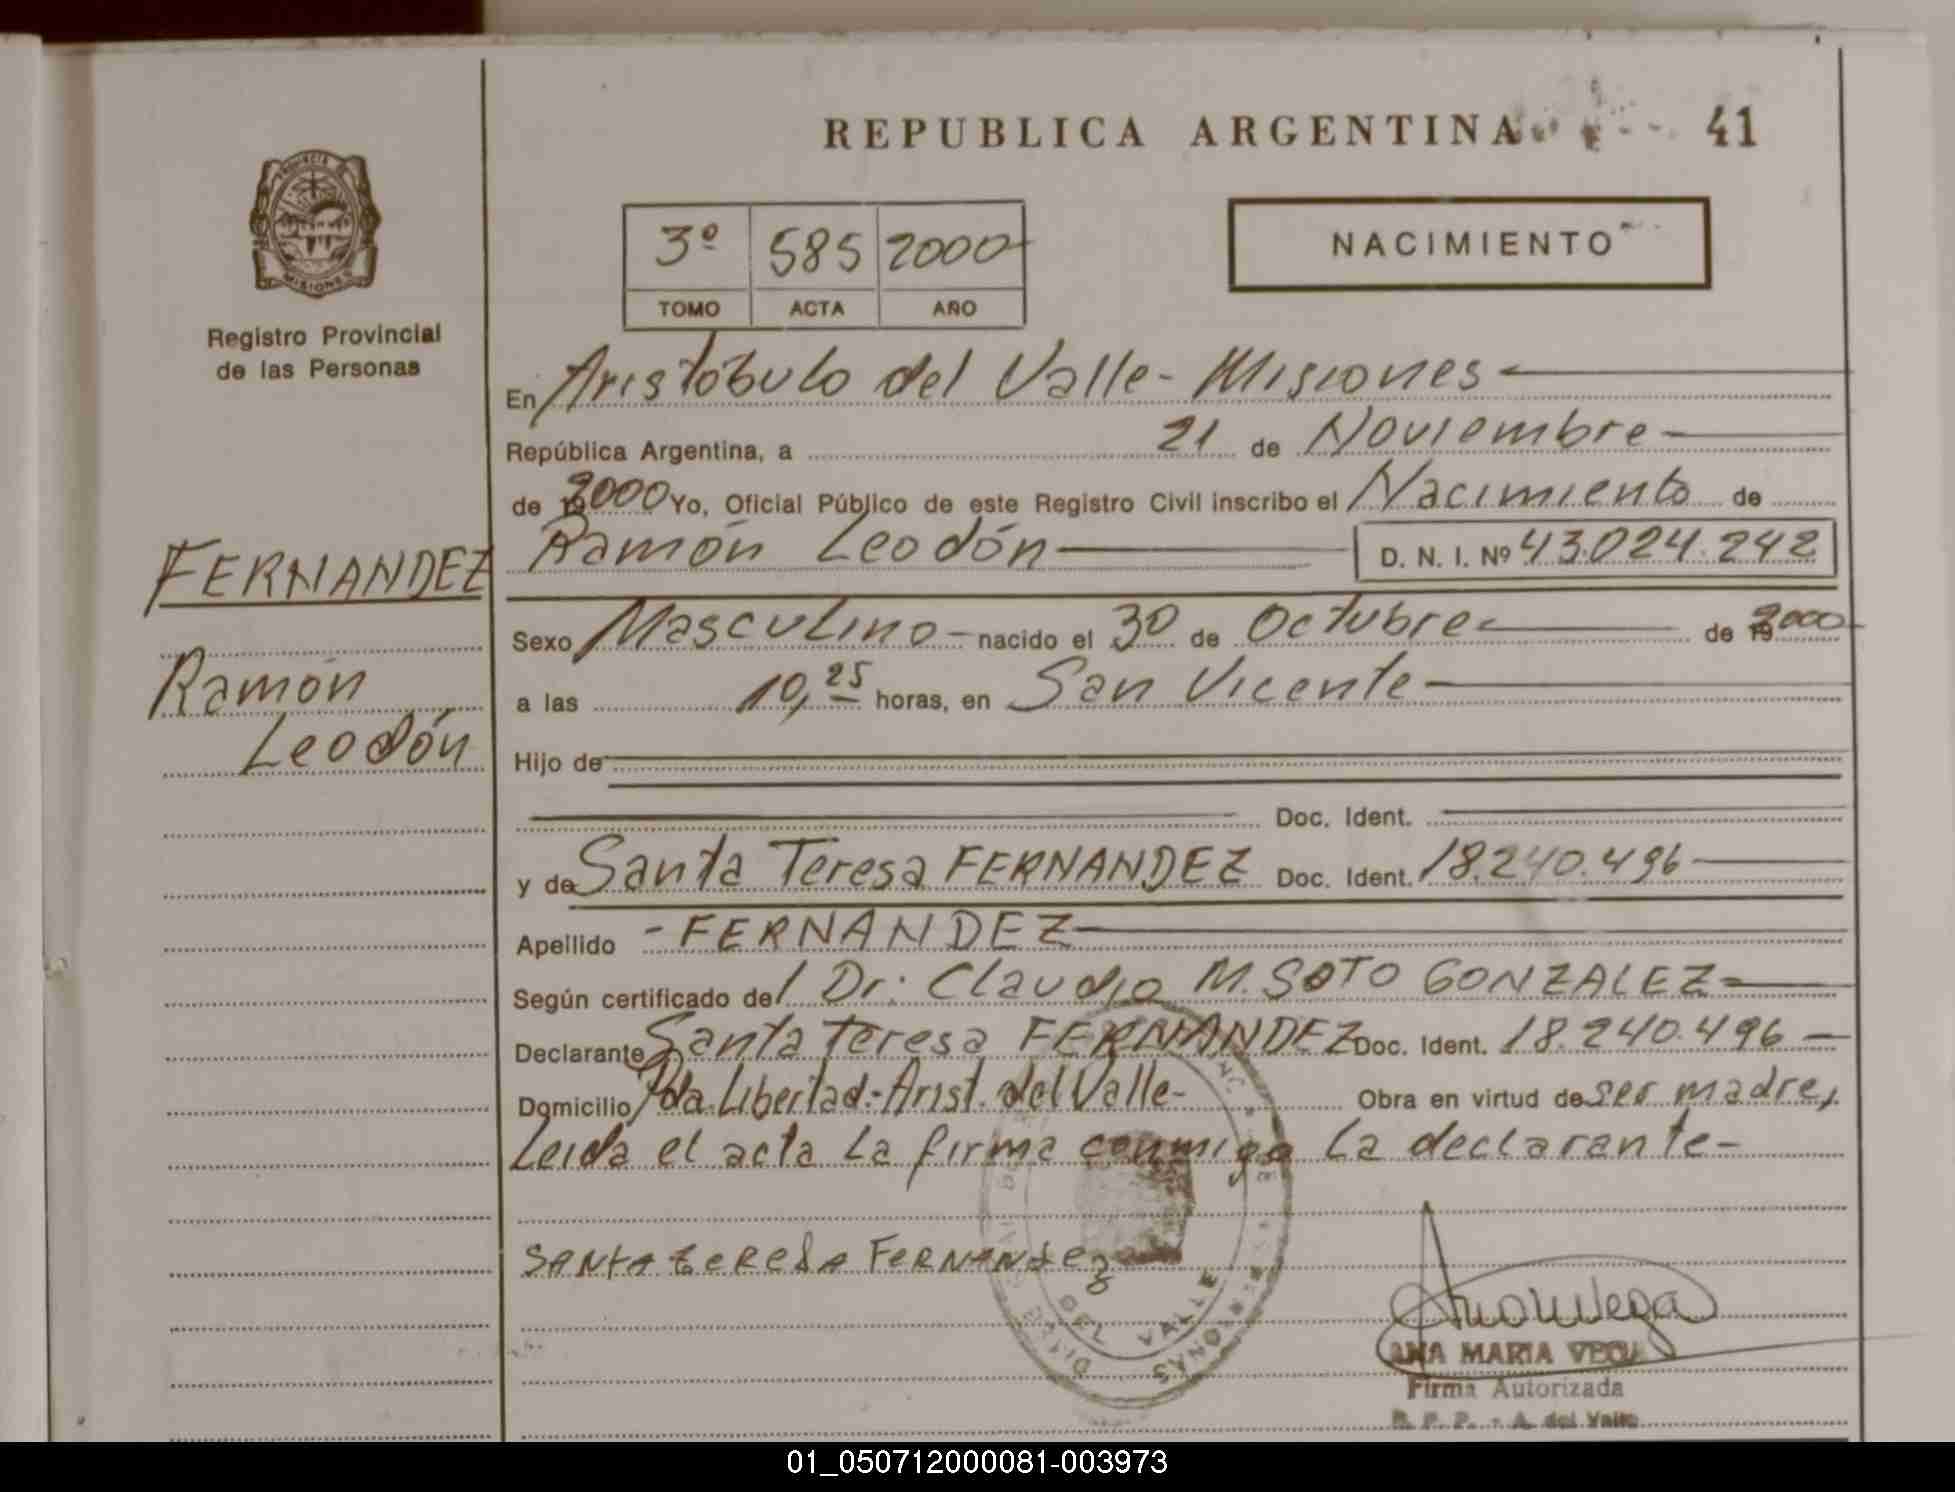 REPUBLICA ARGENTINA 41
PROVINCIA DE MISIONES
Registro Provincial
de las Personas
3º 585 2000
TOMO ACTA AÑO
NACIMIENTO
En Aristóbulo del Valle - Misiones
República Argentina, a 21 de Noviembre
de 2000 Yo, Oficial Público de este Registro Civil inscribo el Nacimiento de
Ramón Leodón D. N. I. Nº 43.024.242
FERNANDEZ
Ramón
Leodón
Sexo Masculino - nacido el 30 de Octubre de 2000
a las 10,25 horas, en San Vicente
Hijo de
Doc. Ident.
y de Santa Teresa FERNANDEZ Doc. Ident. 18.240.496
Apellido - FERNANDEZ
Según certificado del Dr. Claudio M. SOTO GONZALEZ
Declarante Santa Teresa FERNANDEZ Doc. Ident. 18.240.496 -
Domicilio Pda. Libertad.- Arist. del Valle- Obra en virtud de ser madre,
Leida el acta la firma conmigo la declarante-
SANta tereSA FerNANdez
DEL VALLE
ANA MARIA VEGA
Firma Autorizada
R. P. P. - A. del Valle
01_050712000081-003973